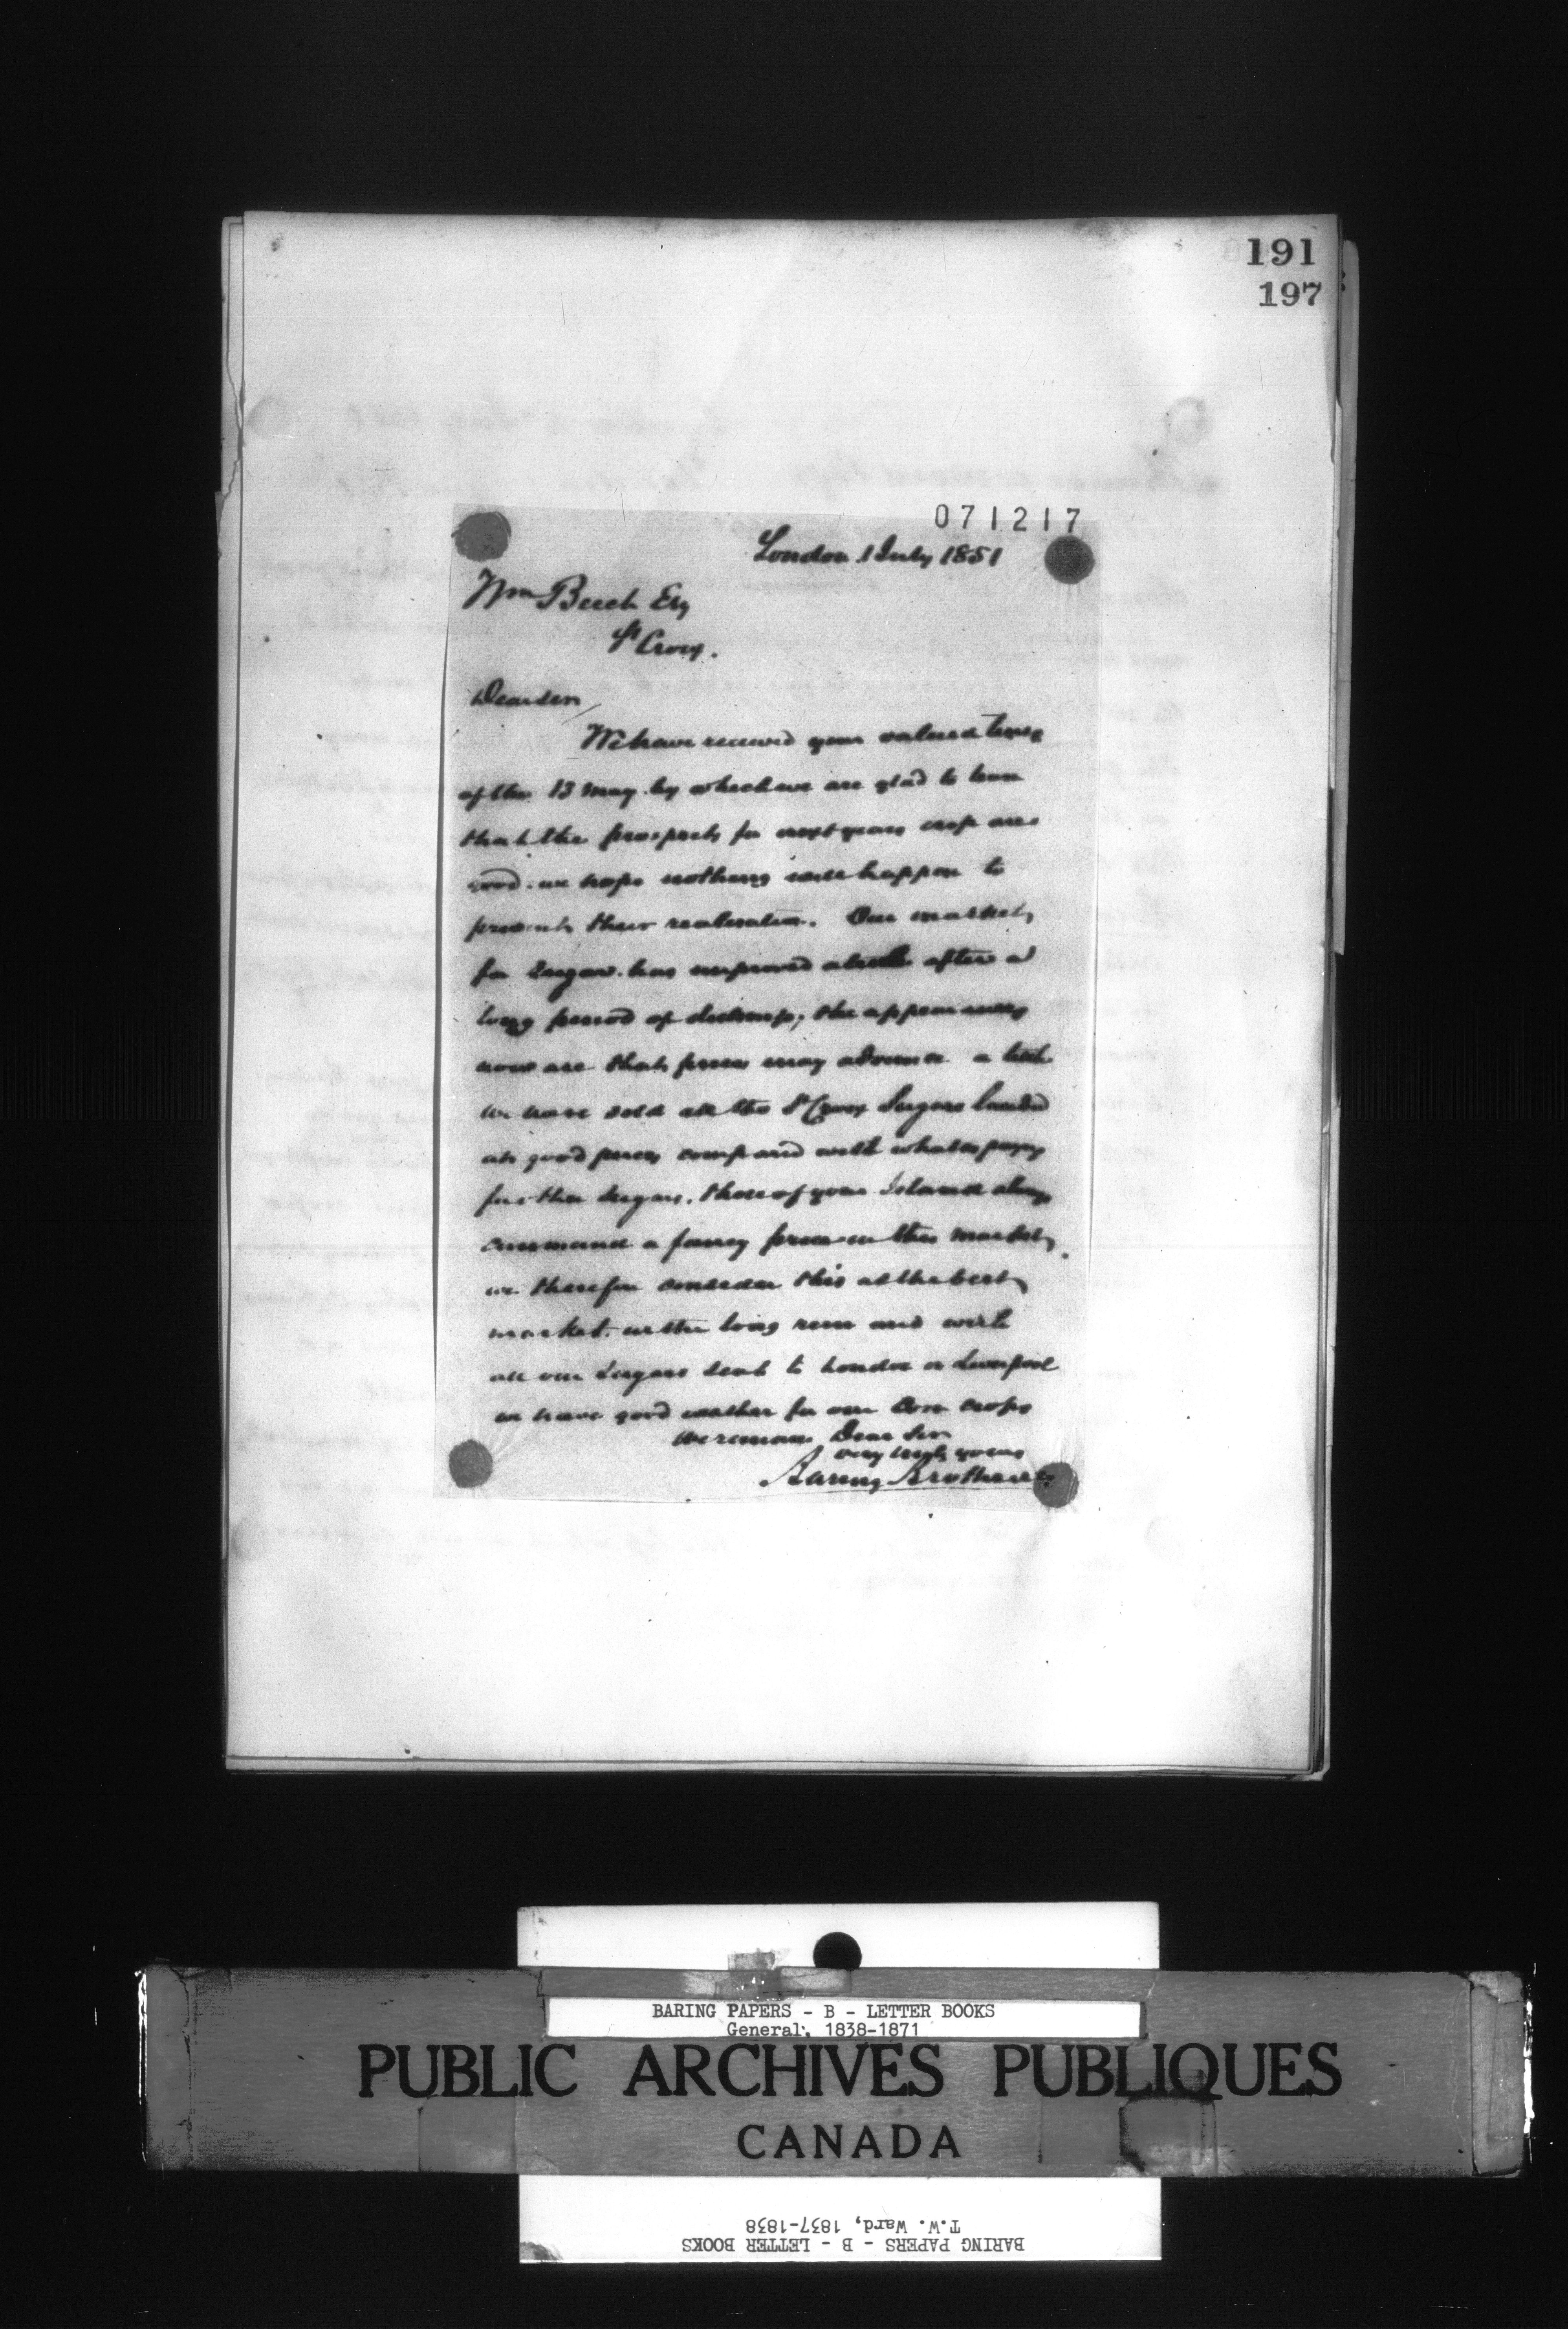 191
197
071217
London 1 July 1851
Wm Beech Esq
St Croix.
Dear Sir
We have received your valued lines
of the 13 May by which we are glad to learn
that the prospects for next years crop are
good. we hope nothing will happen to
prevent their realisation. Our market
for Sugar has improved a little after a
long period of; the appearances
now are that prices may advance a little
we have sold all the St Croix Sugars landed
at good prices compared with what is
for other Sugars. those of your Island always
command a fancy price in this market,
we therefore consider this as the best
market in the long run and wish
all our Sugars sent to London or Liverpool
we have good weather for our Corn crops
We remain Dear Sir
very truly yours
Baring Brothers & Co
BARING PAPERS - B - LETTER BOOKS
General, 1838-1871
PUBLIC ARCHIVES PUBLIQUES
CANADA
T.W. Ward, 1837-1838
BARING PAPERS - B - LETTER BOOKS